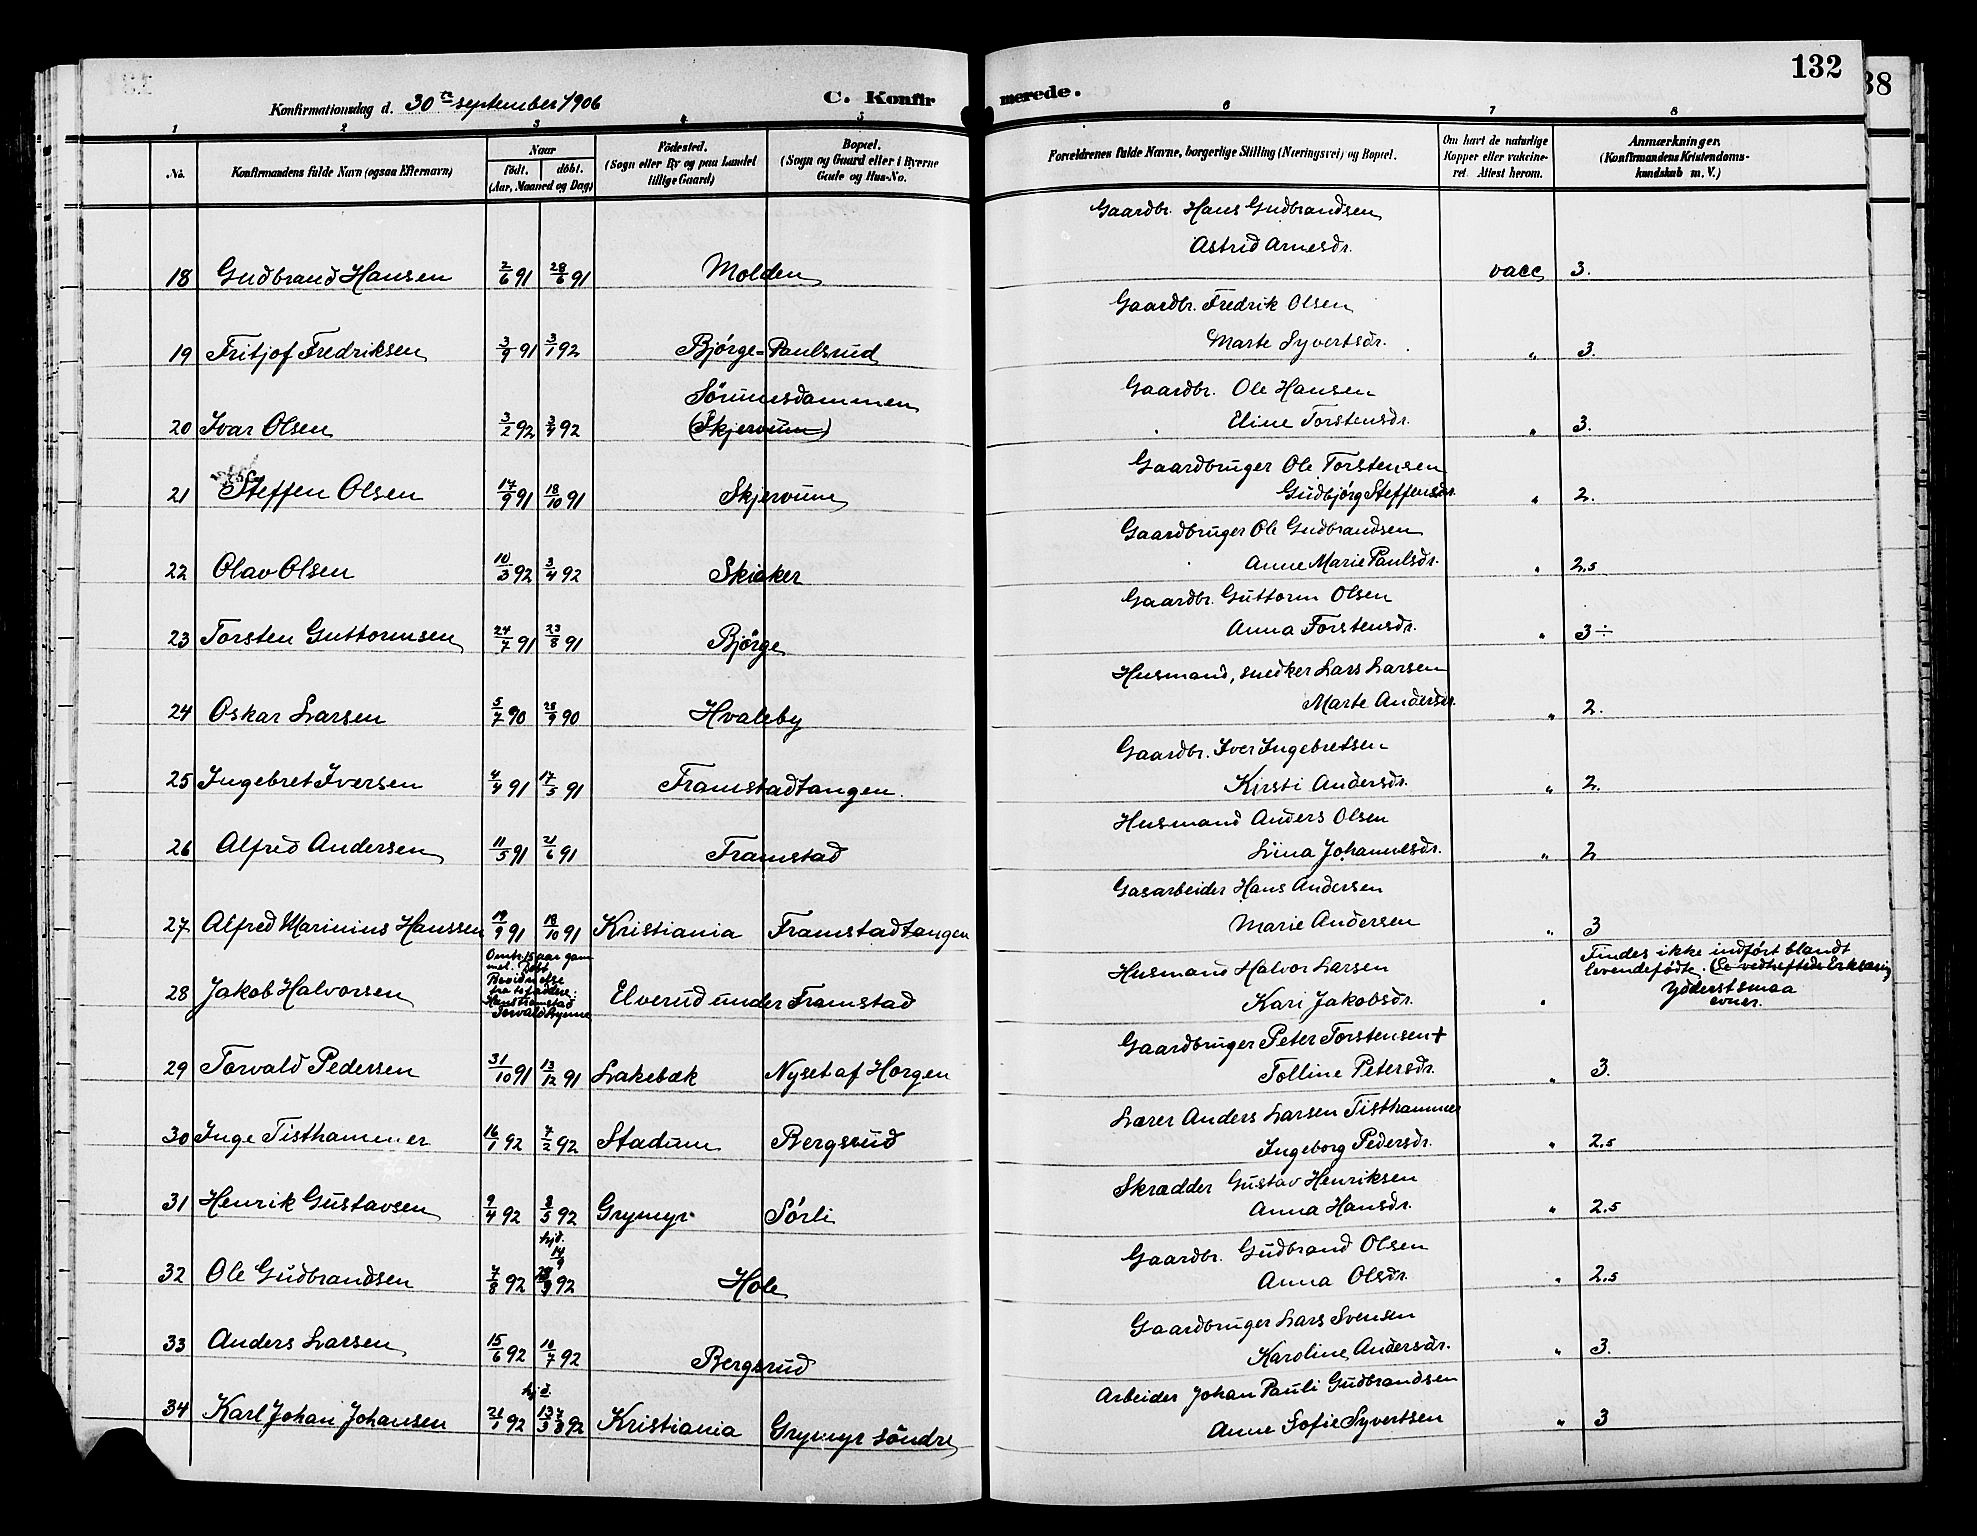 132
38
Konfirmationsdag d. 30te september 1906
C. Konfirmerede.
1 2 3 4 5 6 7 8
No.
Konfirmandens fulde Navn (ogsaa Efternavn)
Naar
født. døbt.
(Aar, Maaned og Dag)
Fødested.
(Sogn eller By og paa Landet
tillige Gaard)
Bopæl.
(Sogn og Gaard eller i Byerne
Gade og Hus-No.
Forældrenes fulde Navne, borgerlige Stilling (Næringsvei) og Bopæl.
Om havt de naturlige
Kopper eller vakcine-
ret. Attest herom.
Anmærkninger.
(Konfirmandens Kristendoms-
kundskab m. V.)
Gaardbr. Hans Gudbrandsen
Astrid Arnesdr.
18 Gudbrand Hansen 2/6 91 28/6 91 Molden vacc 3.
Gaardbr. Fredrik Olsen
19 Fritjof Fredriksen 3/9 91 3/1 92 Bjørge-Paulsrud Marte Syvertsdr. " 3.
Sørumsdammen Gaardbr. Ole Hansen
20 Ivar Olsen 3/2 92 3/4 92 (Skjervum) Eline Torstensdr. " 3.
Gaardbruger Ole Torstensen
21 Steffen Olsen 17/9 91 18/10 91 Skjervum Gudbjørg Steffensdr. " 2.
Gaardbruger Ole Gudbrandsen
22 Olav Olsen 10/3 92 3/4 92 Skiaker Anne Marie Paulsdr. " 2,5
Gaardbr. Guttorm Olsen
23 Torsten Guttormsen 24/7 91 23/8 91 Bjørge Anna Torstensdr. " 3÷
Husmand, snedker Lars Larsen
24 Oskar Larsen 5/7 90 28/9 90 Hvaleby Marte Andersdr. " 2.
Gaardbr. Iver Ingebretsen
25 Ingebret Iversen 4/4 91 17/5 91 Framstadtangen. Kirsti Andersdr. " 2.
Husmand Anders Olsen
26 Alfred Andersen 11/5 91 21/6 91 Framstad Lina Johannesdr. " 2
Gasarbeider Hans Andersen
27 Alfred Marinius Hanssen 19/9 91 18/10 91 Kristiania Framstadtangen Marie Andersen " 3
Omtr. 15 aar gam
mel. Døbt
Bevidnelse
fra to faddere:
Hans Framstad
Torvald Bynne
Husmand Halvor Larsen
Findes ikke indført blandt
levendefødte. (Se vedheftede Erklæring
28 Jakob Halvorsen Elverud under Framstad Kari Jakobsdr. " Yderst smaa
evner.
Gaardbruger Peter Torstensen +
29 Torvald Pedersen 31/10 91 13/12 91 Lakebæk Nyset af Horgen Tolline Petersdr. " 3.
Lærer Anders Larsen Tisthammer
30 Inge Tisthammer 16/1 92 7/2 92 Stadum Bergsrud Ingeborg Pedersdr. " 2,5
Skrædder Gustav Henriksen
31 Henrik Gustavsen 9/4 92 8/5 92 Grymyr Sørli Anna Hansdr. " 2,5
hjd. 14/9
Gaardbr. Gudbrand Olsen
32 Ole Gudbrandsen 7/8 92 92 Hole Anna Olsdr. " 2,5
Gaardbruger Lars Svensen
33 Anders Larsen 15/6 92 10/7 92 Bergsrud Karoline Andersdr. " 3.
hjd.
Arbeider Johan Pauli Gudbrandsen
34 Karl Johan Johansen 21/1 92 13/3 92 Kristiania Grymyr søndre Anne Sofie Syvertsen " 3